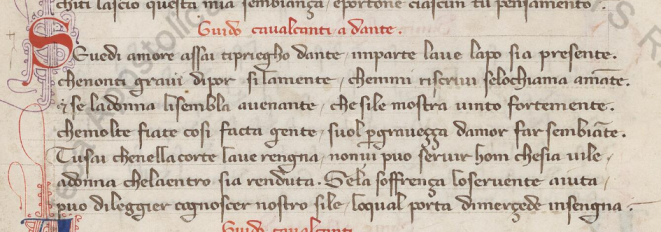 chiti lascio questa mia sembianza, eportone ciascun tu pensamento.
Guido cavalcanti a dante.
Suedi amore assai tipriegho dante / inparte laue lapo sia presente.
chenonti graui dipor si lamente / chemmi riscriui selochiama amãte.
⁊ se ladonna lisembla auenante / chesile mostra uinto fortemente.
chemolte fiate cosi facta gente / suol ꝑgrauezza damor far sembiãte.
Tusai chenella corte laue rengna / nonui puo seruir hom chesia uile /
adonna chelaentro sia renduta. Sela soffrenza loseruente aiuta /
puo dileggier cognoscer nostro sile / loqual porta dimerzede insengna.
Guido caualcanti